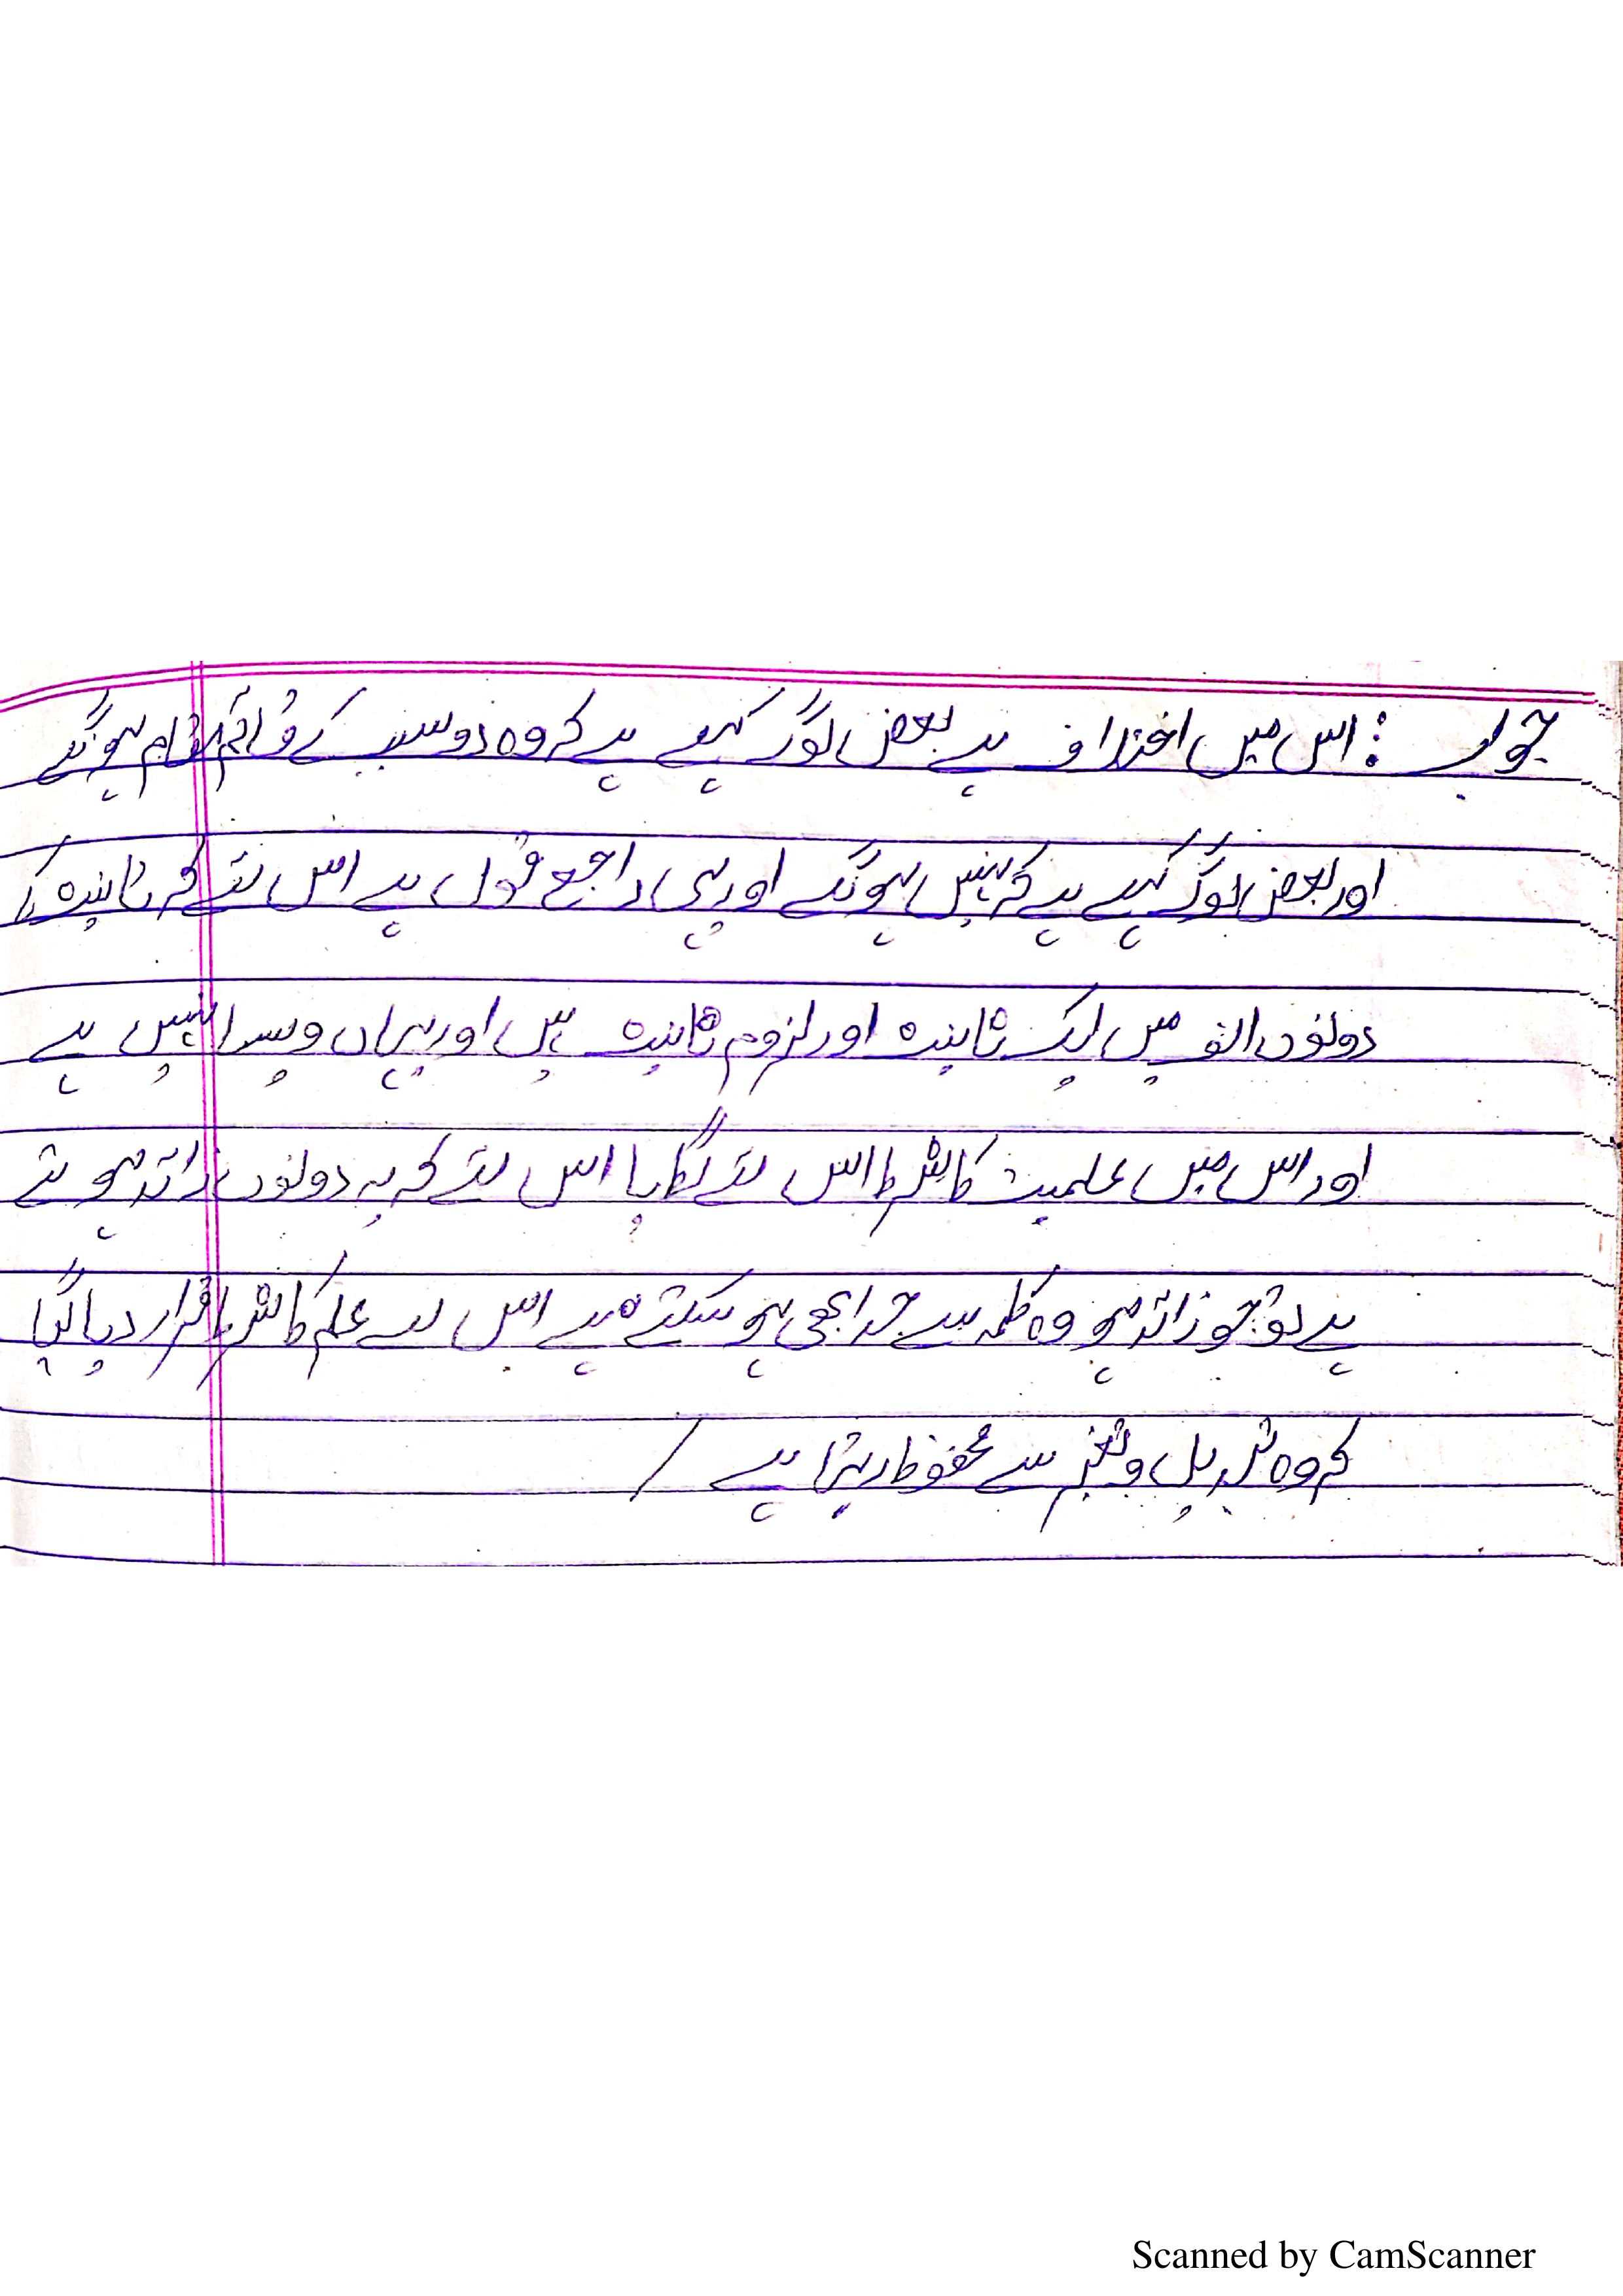 جواب : اس میں اختلاف ہے بعض لوگ کہتے ہے کہ وہ دو سبب کے قائم مقام ہونگے
اور بعض لوگ کہتے ہے کہ نہیں ہونگے اور یہی راجع قول ہے اس لئے کہ تانیث کے
دونوں الف میں ایک تانیث اور لزوم تانیث ہیں اور یہاں ویسا نہیں ہے
اور اس میں علمیت کا شرط اس لئے لگایا اس لئے کہ یہ دونوں زائد ہوتے
ہے تو جو زائد ہو وہ کلمہ سے جدا بھی ہو سکتے ہے اس لے علم کا شرط قرار دیا گیا
کہ وہ تبدیل و تغیر سے محفوظ رہتا ہے /
Scanned by CamScanner